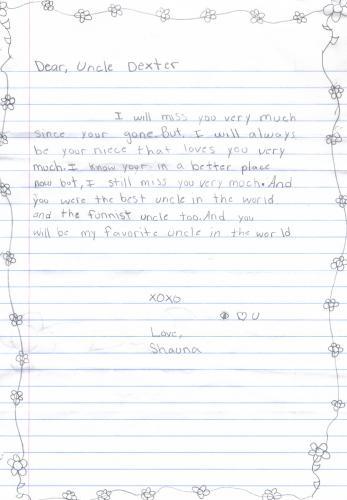 Dear, Uncle Dexter
I will miss you very much
since your gone. But, I will always
be your niece that loves you very
much. I know your in a better place
now but, I still miss you very much. And
you were the best uncle in the world
and the funnist uncle too. And you
will be my favorite uncle in the world
XOXO
♡ U
Love,
Shauna